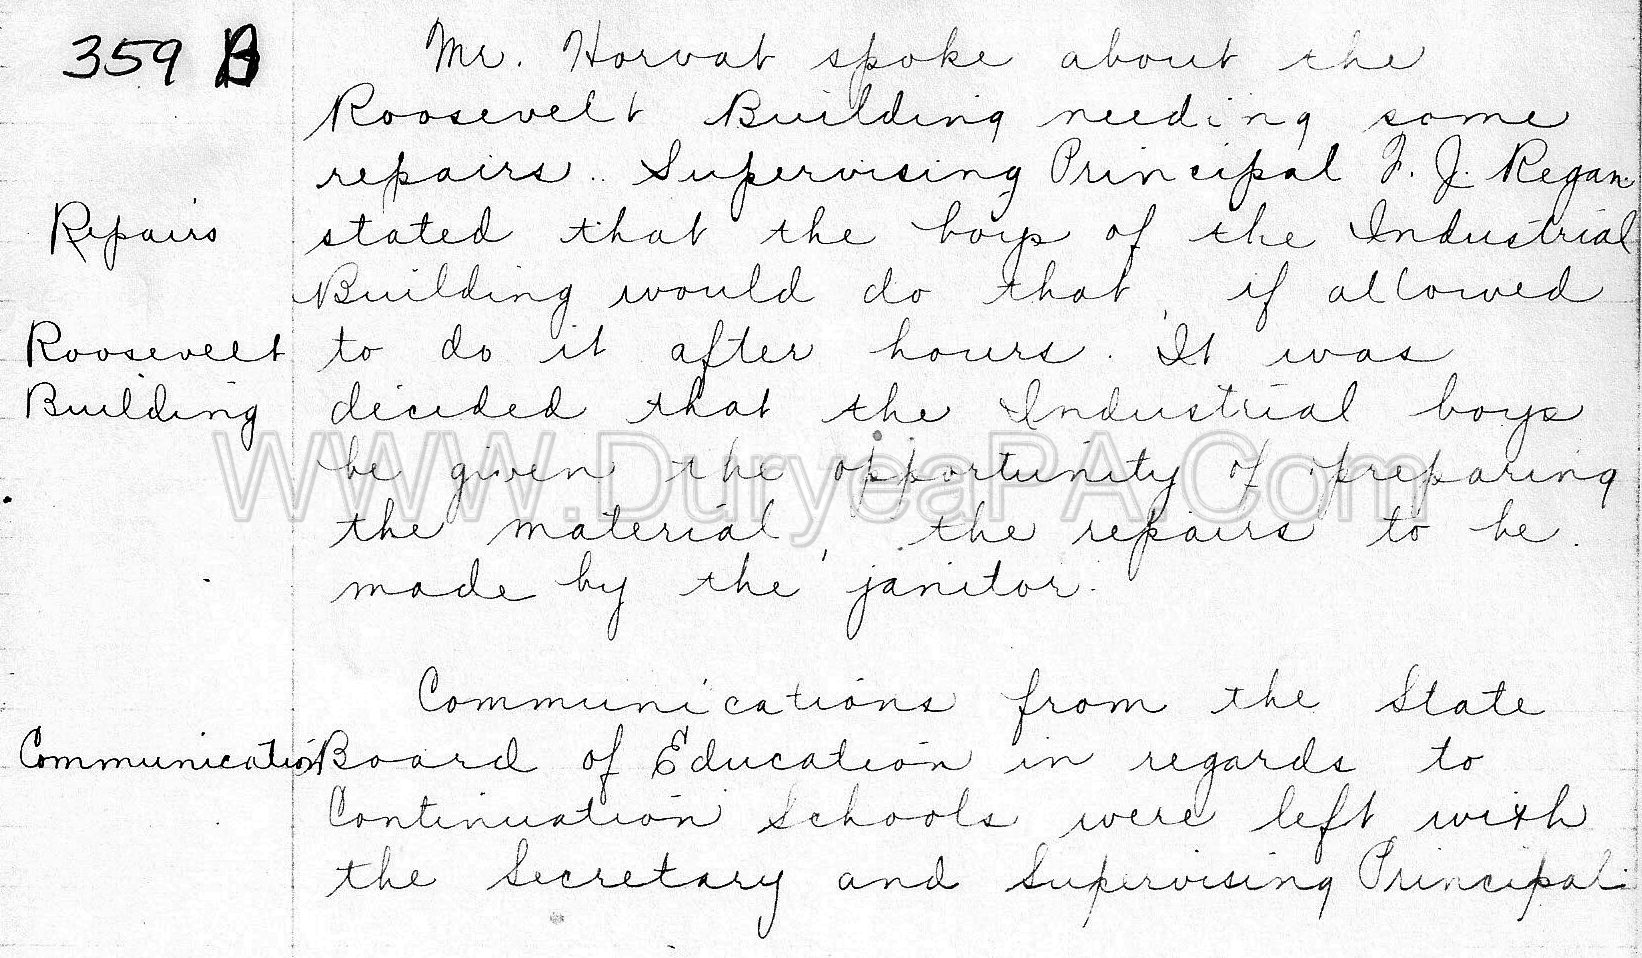 359 B
Mr. Horvat spoke about the
Roosevelt Building needing some
repairs. Supervising Principal F. J. Regan
Repairs
stated that the boys of the Industrial
Building would do that, if allowed
Roosevelt
to do it after hours. It was
Building
decided that the Industrial boys
WWW.DuryeaPA.Com
be given the opportunity of preparing
the material, the repairs to be
made by the janitor.
Communications from the State
Communication
Board of Education in regards to
Continuation Schools were left with
the Secretary and Supervising Principal.